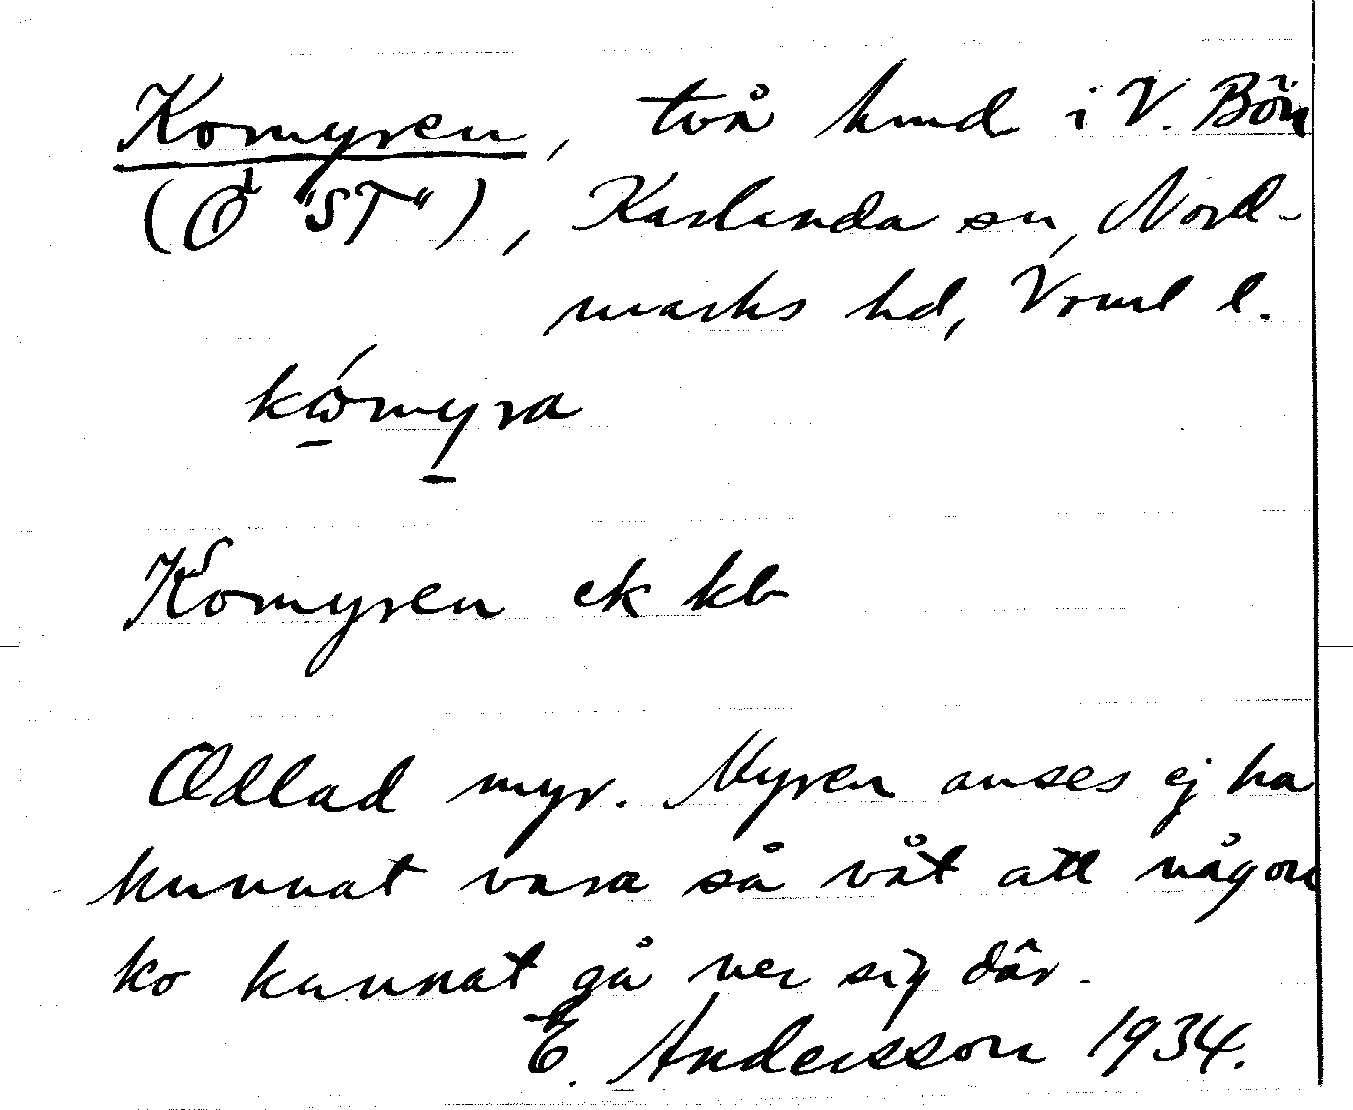 Komyren, två hmd i V. Bön
(Ö "ST"), Karlanda sn, Nord-
marks hd, Vrml l.
kómyra
Komyren ek kb
Odlad myr. Myren anses ej ha
kunnat vara så våt att någon
ko kunnat gå ner sig där.
E. Andersson 1934.